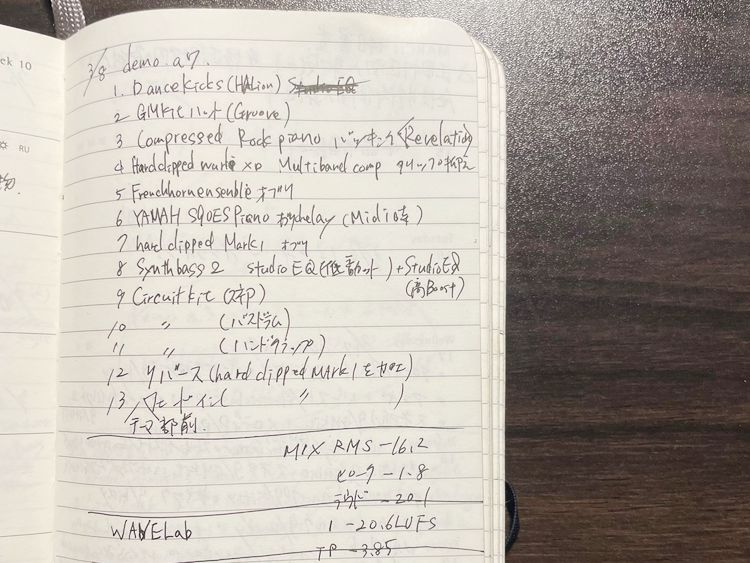 ek 10
RU
3/8 demo a7.
1. Dancekicks (HALion) Studio EQ
2 GMKit ハット (Groove)
3 Compressed Rock piano バッキング (Revelation)
4 Hardclipped mark Multiband comp
5 Frenchhornensenble オブリ
6 YAMAH S90ES Piano delay (Midi
7 hard clipped Mark1 オブリ
8 Synthbass2 studio EQ (低 カット) + StudioEQ
(高Boost)
9 Circuitkit
10 〃 (バスドラム)
11 〃 (ハンドクラップ)
12 リバース (hard clipped MARK1を加工)
13 〃 )
テーマ部前.
MIX RMS -16.2
ピーク -1.8
ラウド -20.1
WAVELab I -20.6LUFS
TP -3.85